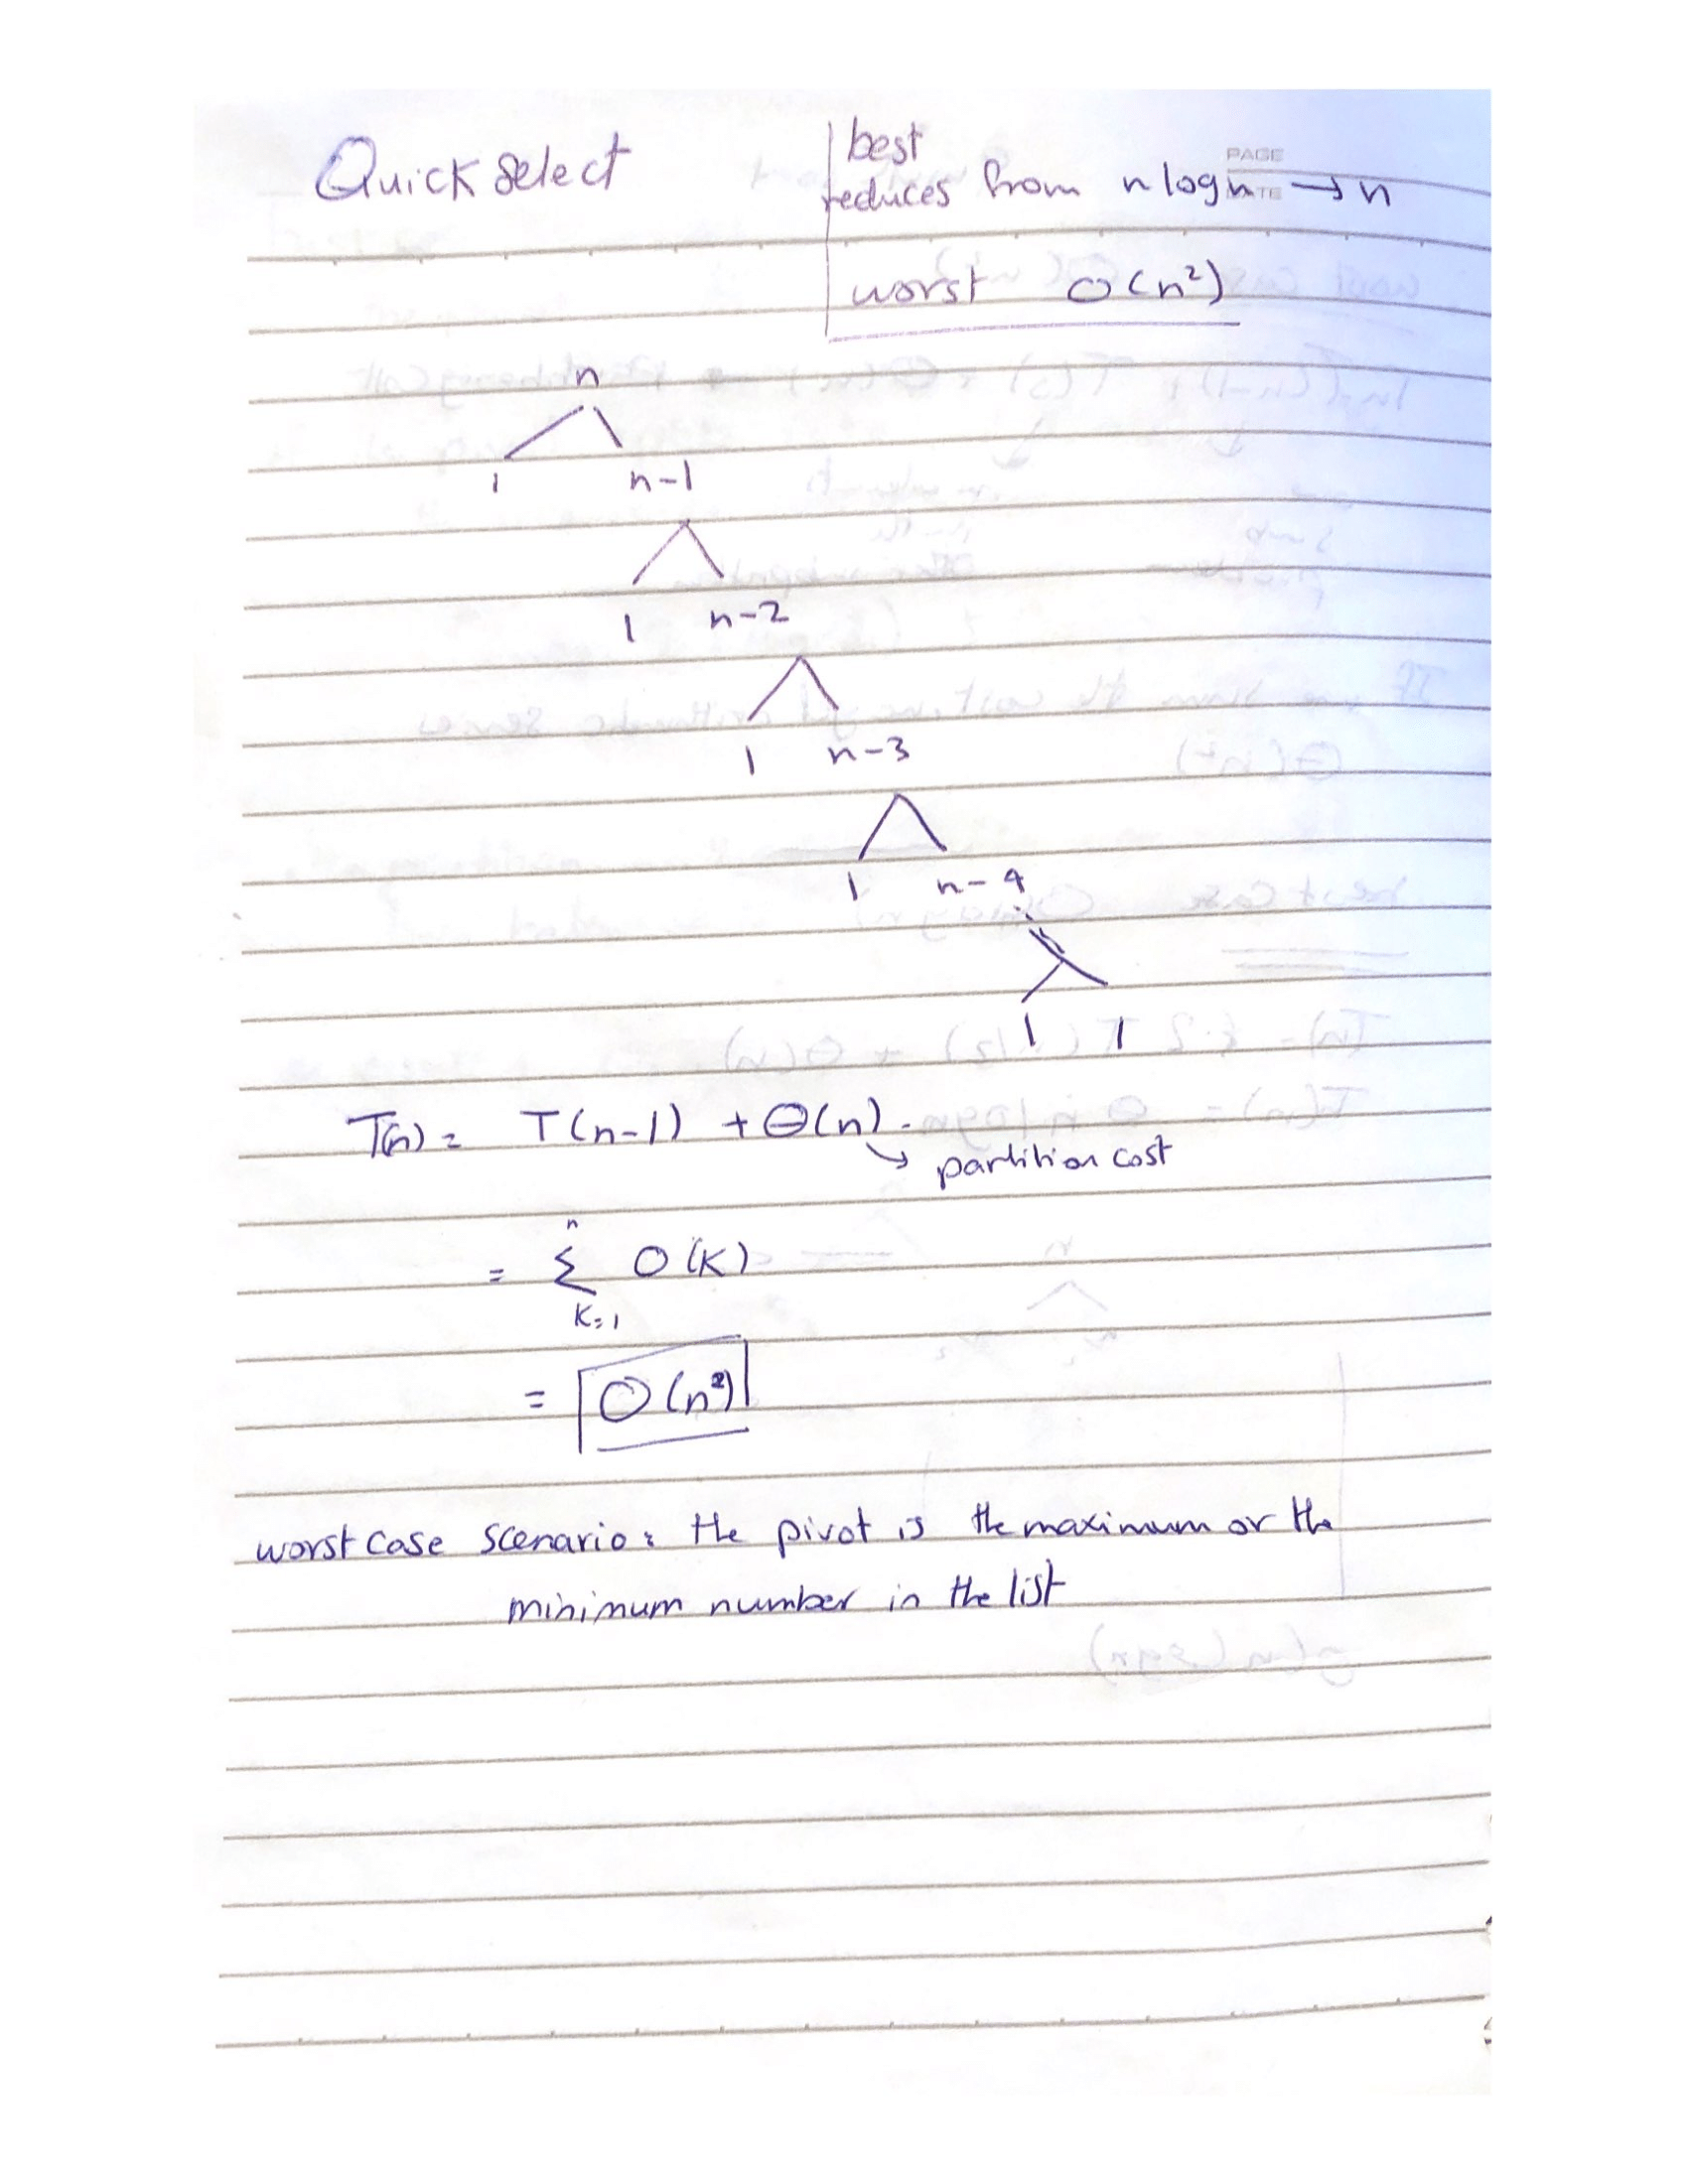 Quick select
best
reduces from n logn → n
PAGE
worst O(n²)
n
1 n-1
1 n-2
1 n-3
1 n-4
1 1
T(n) = T(n-1) + Θ(n).
↘ partition cost
n
= Σ O(K)
K=1
= O(n²)
worst case scenario: the pivot is the maximum or the
minimum number in the list